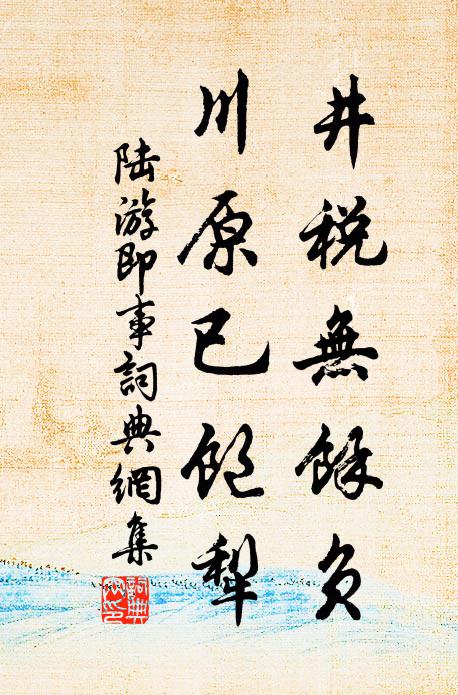 井稅無餘負
川原已飽犁
陸游即事詞典網集